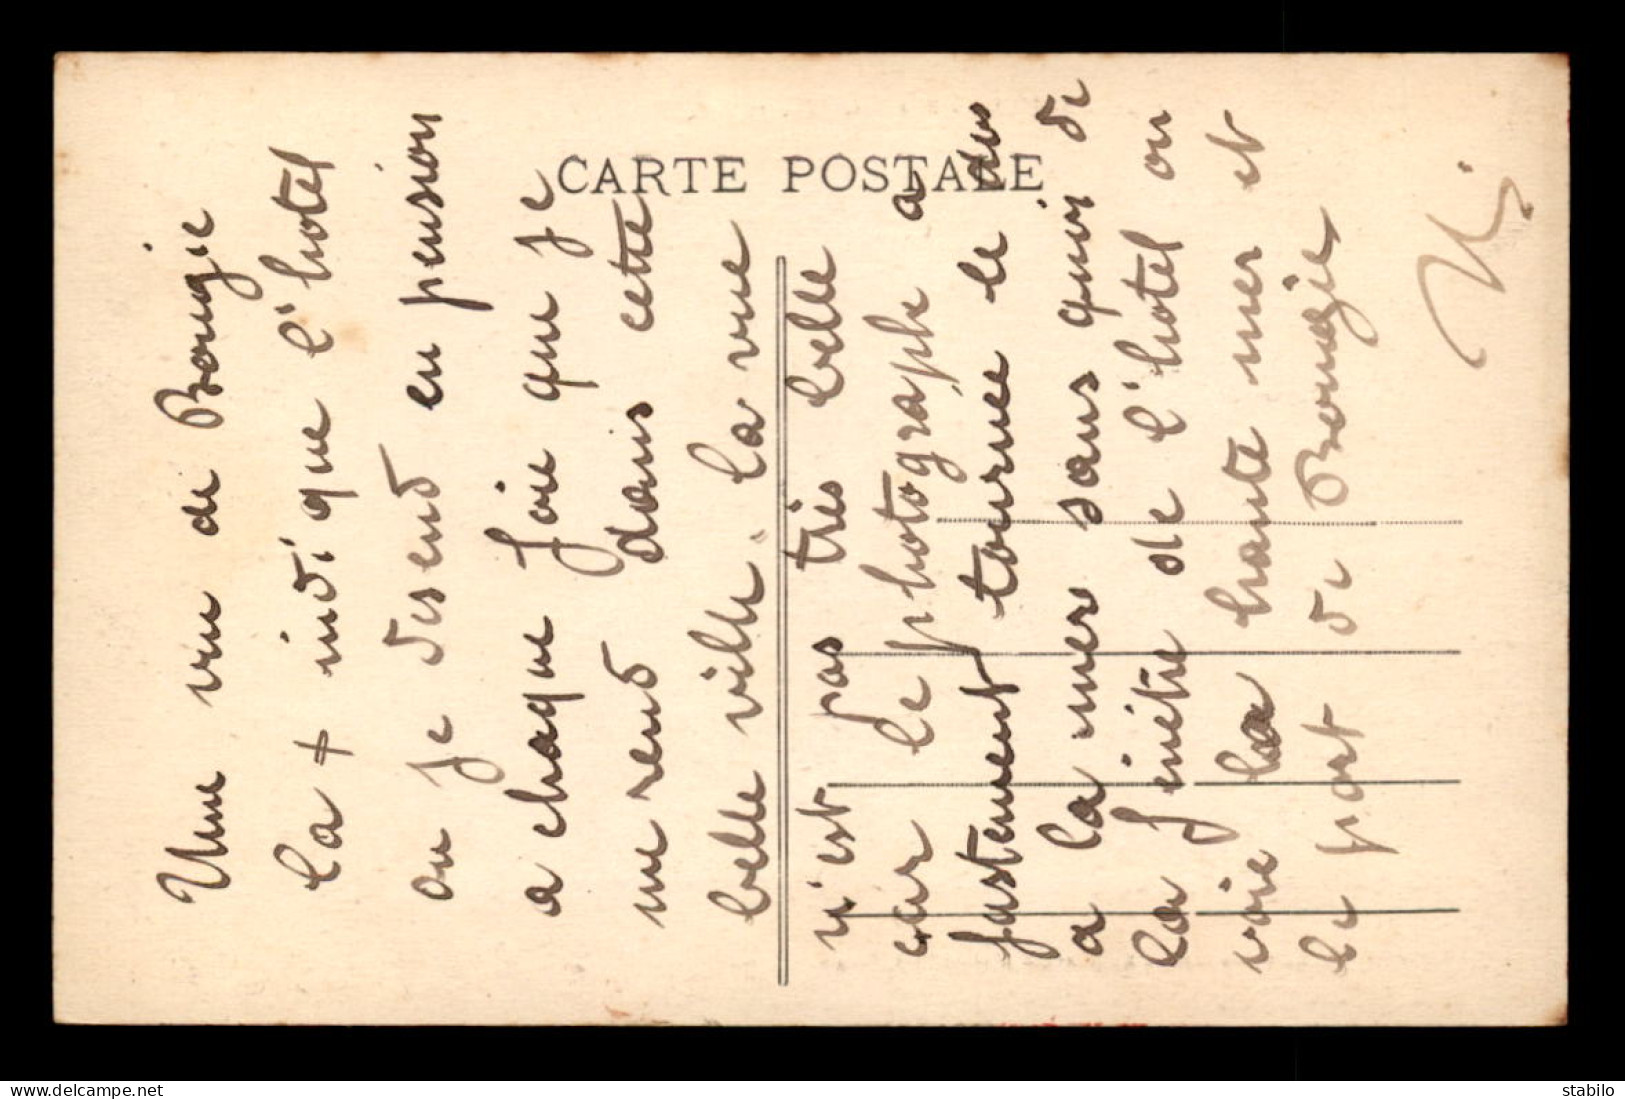 CARTE POSTALE
Une vue de Bougie
la + indique l'hotel
ou je desend en pension
a chaque foie que je
me rend dans cette
belle ville. la vue
n'est pas très belle
car le photographe a
justement tourne le dos
a la mer sans quoi de
la fenêtre de l'hotel on
voie la haute mer et
le port de Bougie
www.delcampe.net
stabilo